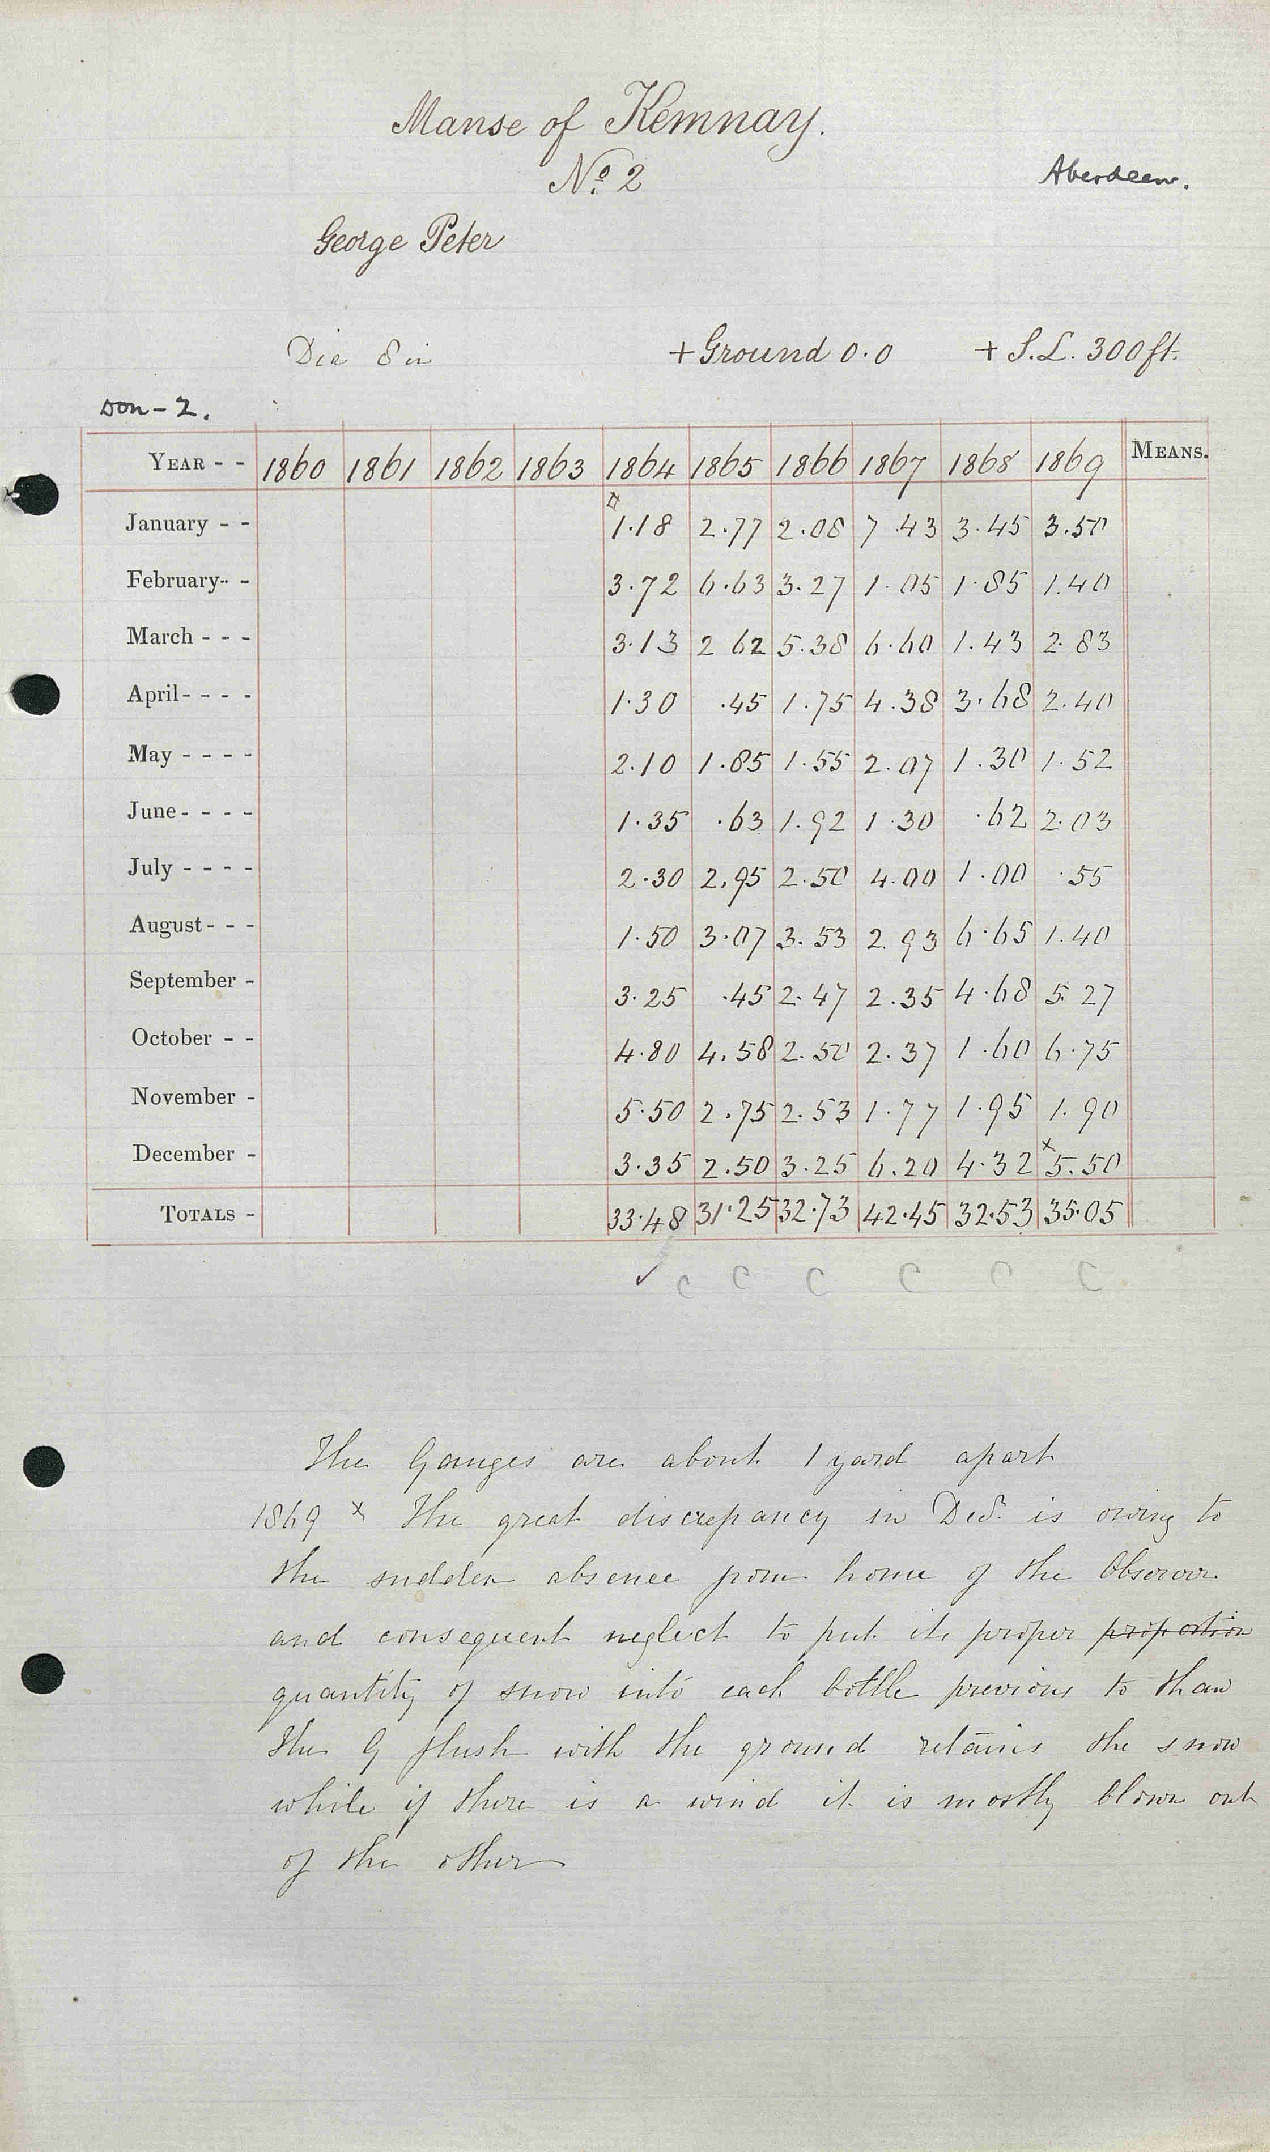 Manse of Kemnay.
No. 2
Aberdeen.
George Peter
Dia 8 in + Ground 0.0 + S.L. 300 ft.
Don - 2.
YEAR - - 1860 1861 1862 1863 1864 1865 1866 1867 1868 1869 MEANS.
January - - 1.18 2.77 2.08 7.43 3.45 3.50
February - - 3.72 6.63 3.27 1.05 1.85 1.40
March - - - 3.13 2 62 5.38 6.60 1.43 2.83
April - - - - 1.30 .45 1.75 4.38 3.68 2.40
May - - - - 2.10 1.85 1.55 2.07 1.30 1.52
June - - - - 1.35 .63 1.92 1.30 .62 2.03
July - - - - 2.30 2.95 2.50 4.00 1.00 .55
August - - - 1.50 3.07 3.53 2.93 6.65 1.40
September - 3.25 .45 2.47 2.35 4.68 5.27
October - - 4.80 4.58 2.50 2.37 1.60 6.75
November - 5.50 2.75 2.53 1.77 1.95 1.90
December - 3.35 2.50 3.25 6.20 4.32 x5.50
TOTALS - 33.48 31.25 32.73 42.45 32.53 35.05
✓ C C C C C C
The Gauges are about 1 yard apart
1869 x The great discrepancy in Dec. is owing to
the sudden absence from home of the Observer
and consequent neglect to put its proper proportion
quantity of snow into each bottle previous to thaw
The G flush with the ground retains the snow
while if there is a wind it is mostly blown out
of the other